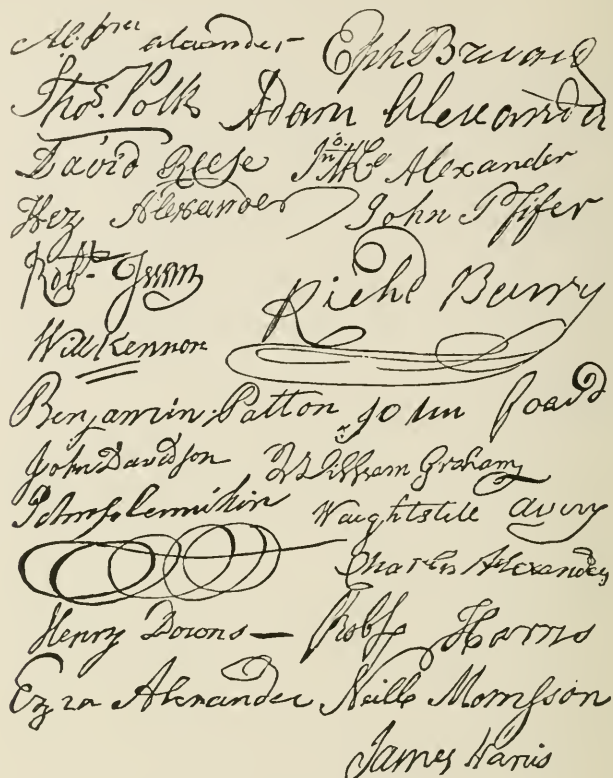 alexander Eph Brevard
Thos. Polk Adam Alexander
David Reese Jno. McK Alexander
Hez Alexander John Pfifer
Robt. Irwin
Richd Barry
Will Kennon
Benjamin Patton John foard
John Davidson William Graham
Waightstill avery
Charles Alexander
Henry Downs Robt Harris
Ezra Alexander Neill Morrisson
James Harris